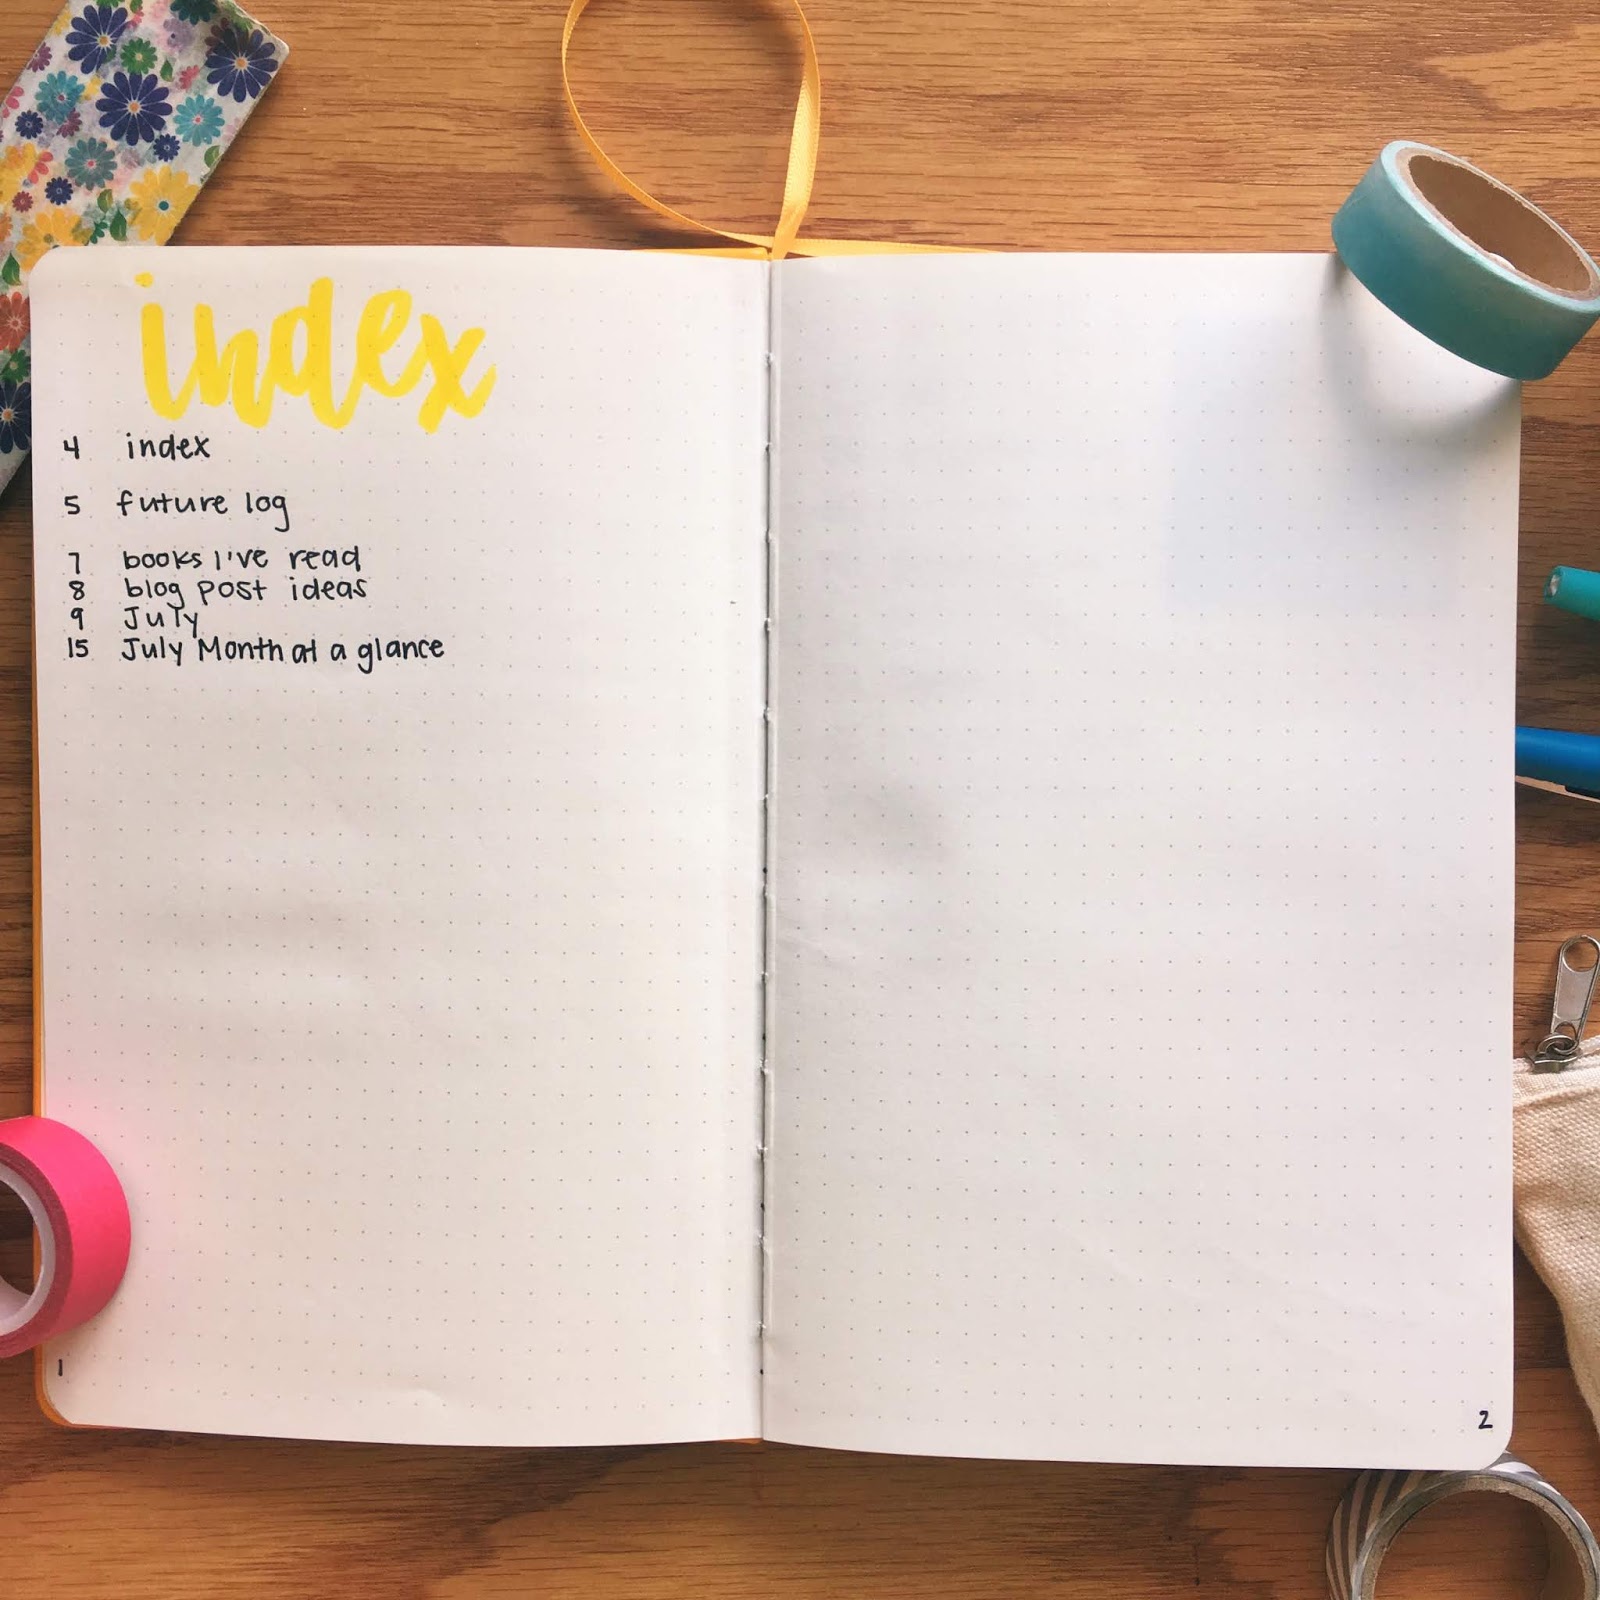 index
4 index
5 future log
7 books I've read
8 blog post ideas
9 July
15 July Month at a glance
1
2